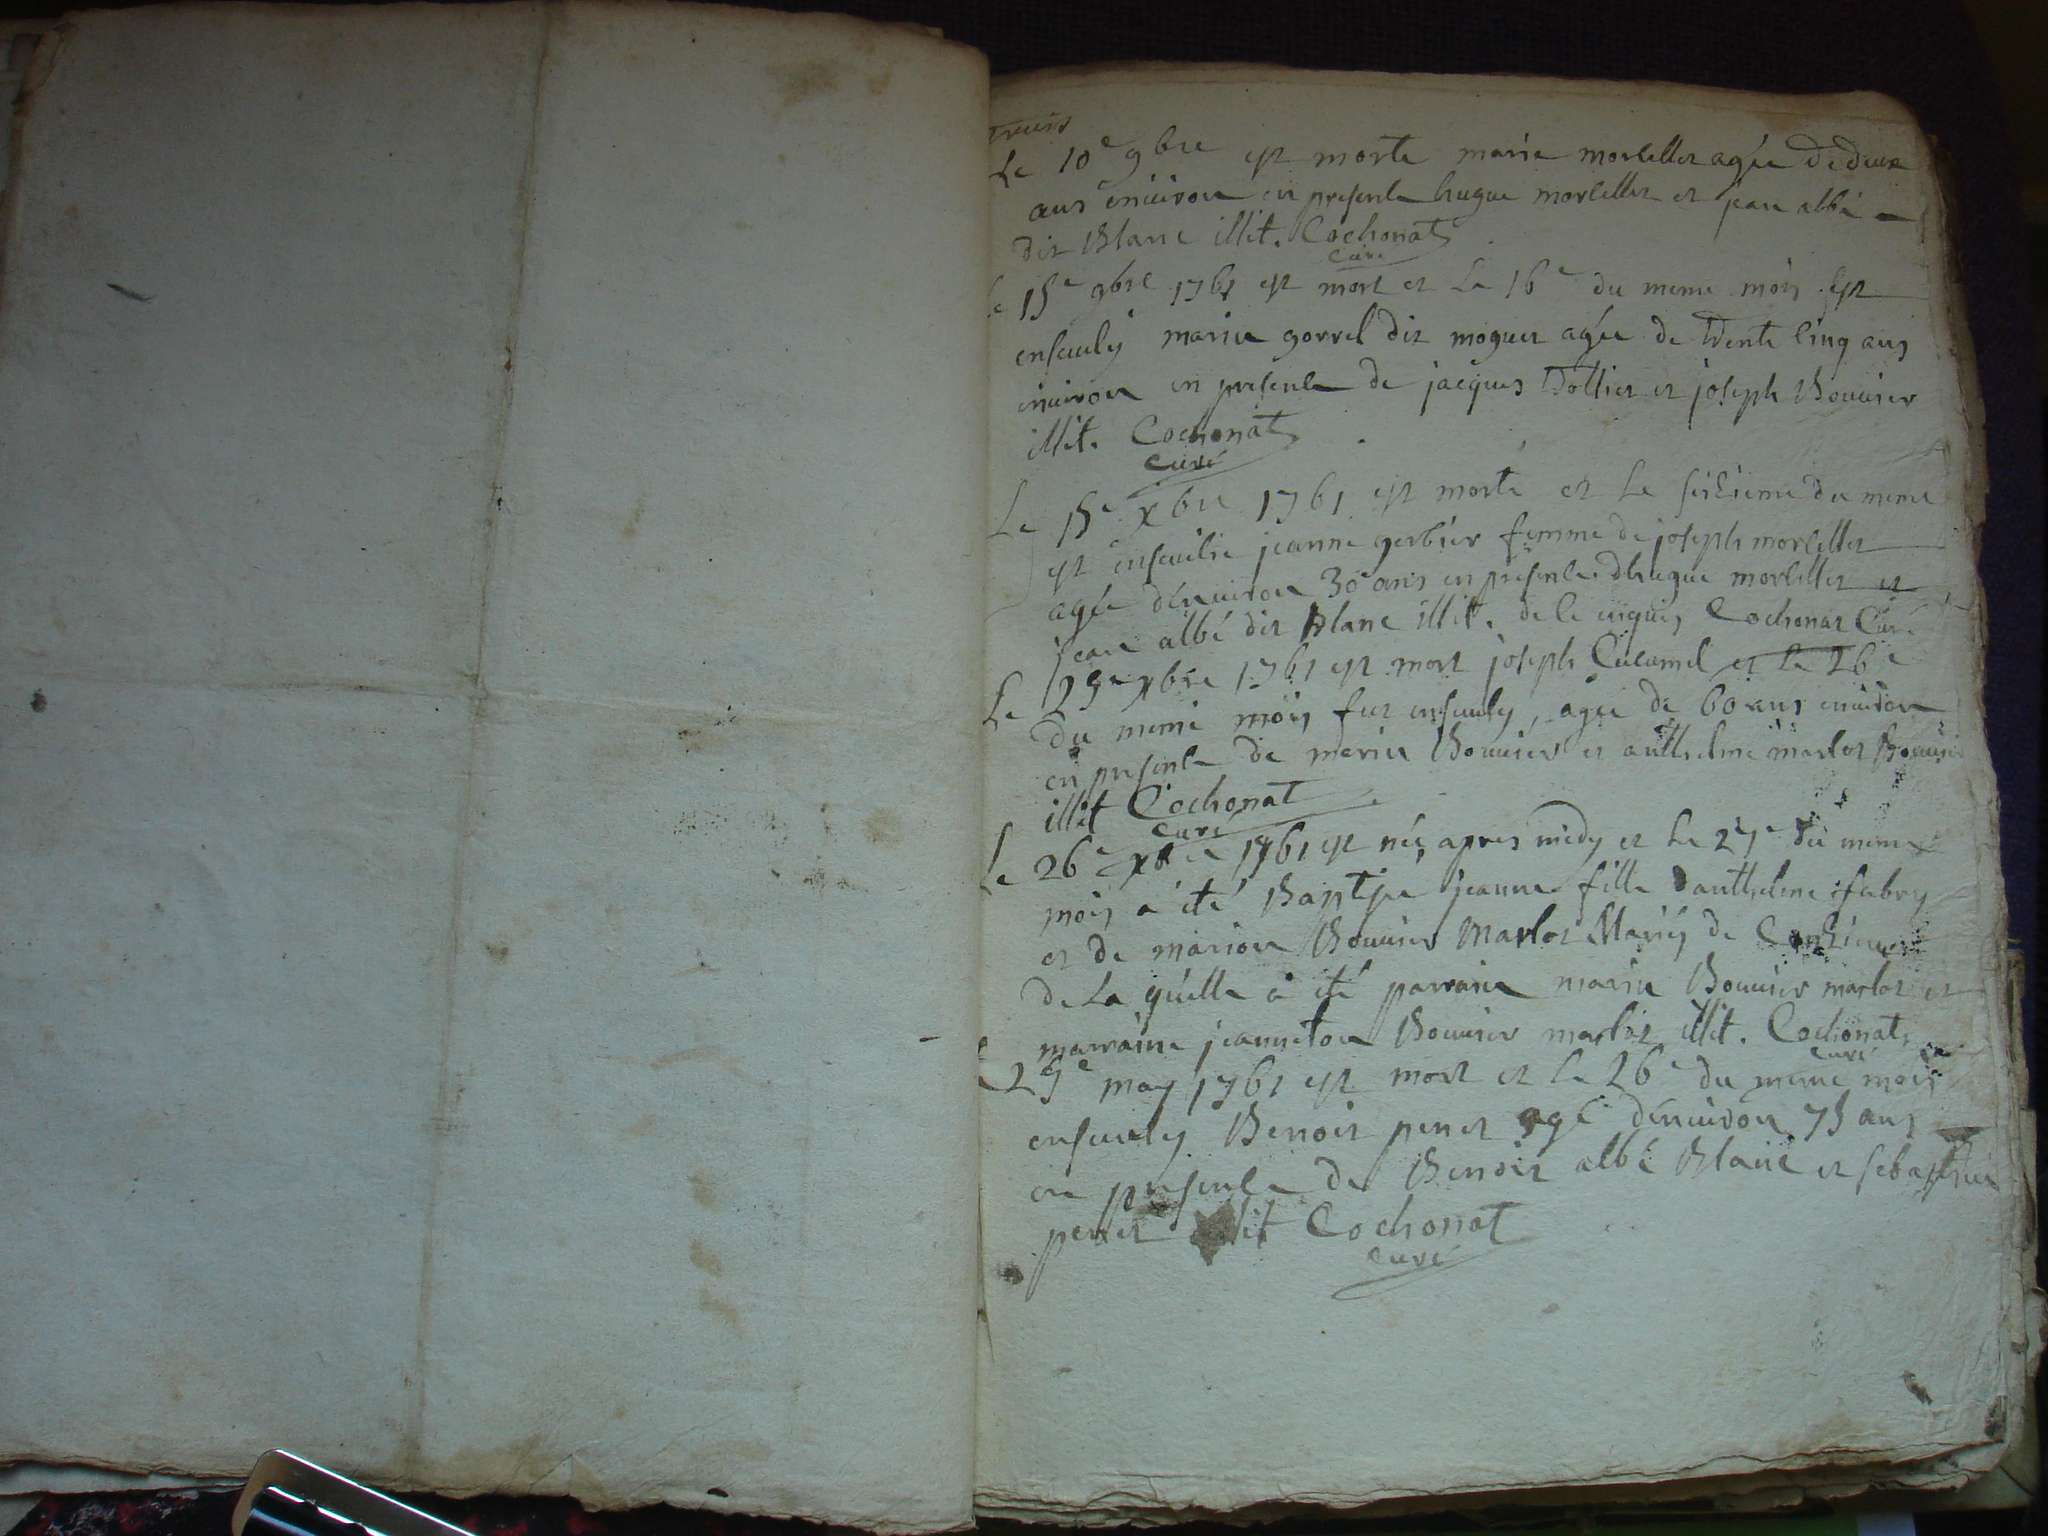 Le 10e 9bre est morte marie morlellet agée de deux
ans environ en presence hugue morlellet et jean albé
dit Blanc illit. Cochonat
Curé
15e 9bre 1761 est mort et le 16e du meme mois est
ensevely marin gorrel dit moguet agée de trente cinq ans
environ en presence de jacques Tollier et joseph Bouvier
illit. Cochonat
curé
Le 15e xbre 1761 est morte et le seizieme du meme
est ensevelie jeanne gerbier femme de joseph morlellet
agée d'environ 30 ans en presence d'hugue morlellet et
jean albé dit Blanc illit. de ce enquis Cochonat Curé
Le 25e xbre 1761 est mort joseph Cucumel et le 26e
du meme mois fut ensevely, agée de 60 ans environ
en presence de merin Bouvier et anthelme marlot Bouvier
illit Cochonat
curé
Le 26e xbre 1761 est née apres midy et le 27e du meme
mois a été Baptisee jeanne fille d'anthelme fabry
et de marion Bouvier Marlot Mariés de
de la quelle a été parrain marin Bouvier marlot et
marraine jeanneton Bouvier marlot illit. Cochonat
curé
25e may 1761 est mort et le 26e du meme mois
ensevely Benoit penet agé d'environ 75 ans
en presence de Benoit albé Blanc et sebastien
penet illit Cochonat
curé